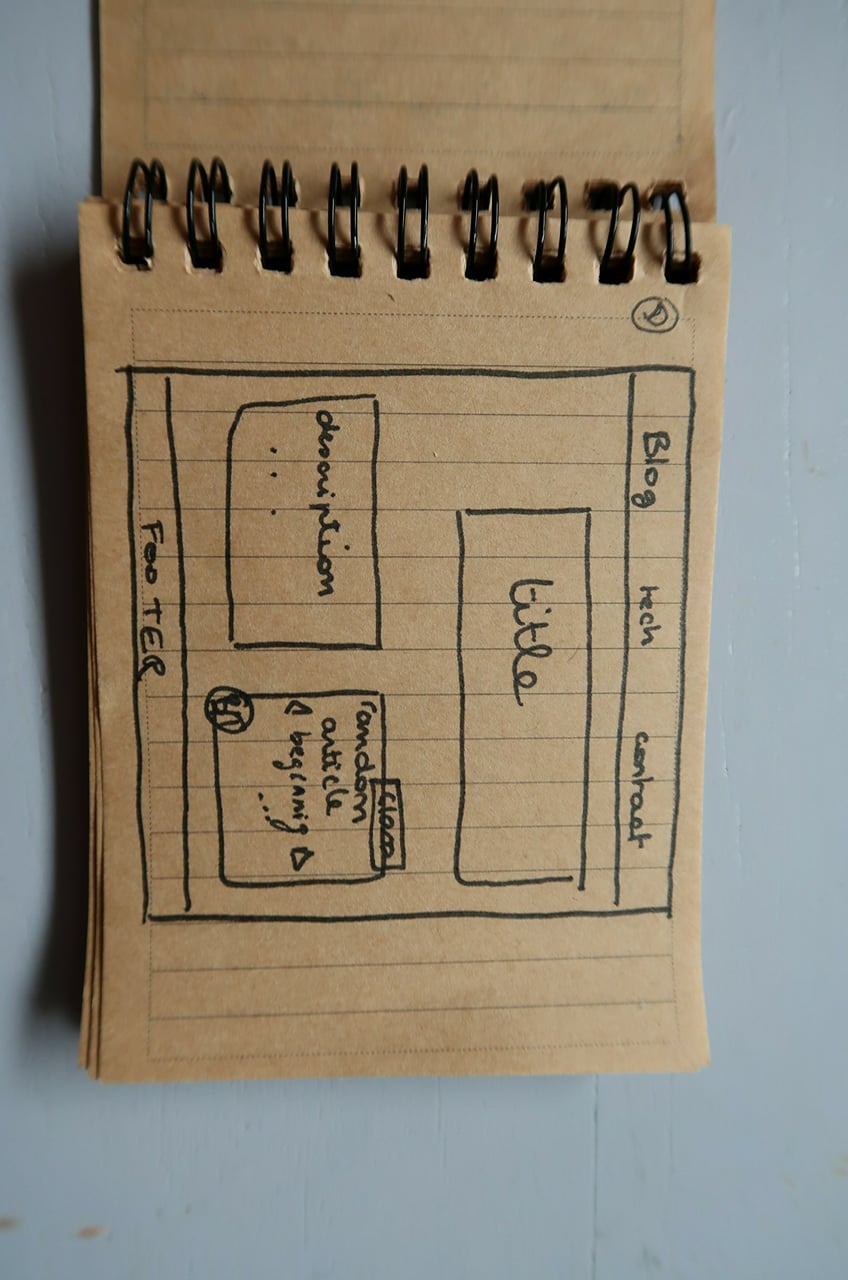 Blog tech contact
title
description
...
class
random
article
beginnig
...
FOOTER